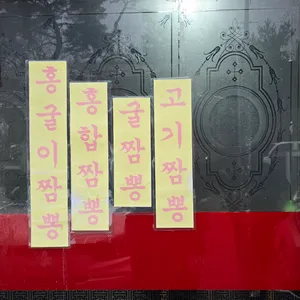 홍굴이짬뽕
홍합짬뽕
굴짬뽕
고기짬뽕